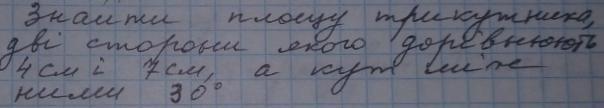 Знайти площу трикутника,
дві сторони якого дорівнюють
4см і 7см, а кут між
ними 30°